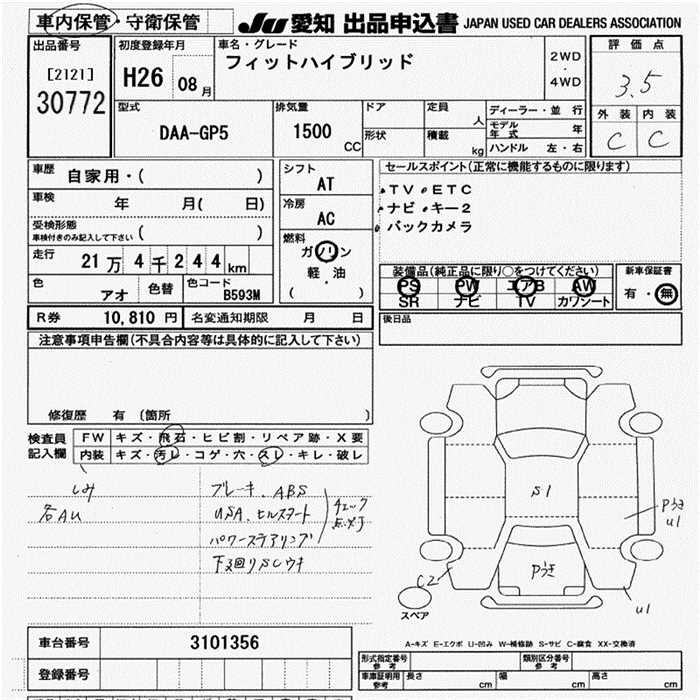 車内保管・守衛保管
JU 愛知 出品申込書 JAPAN USED CAR DEALERS ASSOCIATION
出品番号 初度登録年月 車名・グレード 評価点
[2121] フィットハイブリッド 2WD
30772 H26 08月 ・ 4WD 3.5
型式 排気量 ドア 定員 人 ディーラー・並行 外装 内装
DAA-GP5 1500 CC 形状 積載 kg モデル年式 年 C C
ハンドル 左・右
車歴 自家用・( ) シフト セールスポイント(正常に機能するものに限ります)
AT TV ETC
車検 年 月( 日) 冷房 ナビ キー2
受検形態 AC バックカメラ
車検付きのみ記入して下さい ( )
走行 21万4千244km 燃料 ガソリン
軽・油
( )
装備品(純正品に限り○をつけてください) 新車保証書
PS PW エアB AW 有・無
SR ナビ TV カワシート
色 アオ 色替 色コード B593M
R券 10,810円 名変通知期限 月 日 後日品
注意事項申告欄(不具合内容等は具体的に記入して下さい)
修復歴 有 (箇所 )
検査員 FW キズ・飛石・ヒビ割・リペア跡・X要
記入欄 内装 キズ・汚レ・コゲ・穴・スレ・キレ・破レ
しみ ブレーキ、ABS
各AU USA、ヒルスタート チェック
パワーステアリング
下廻りSCウキ
S1
Pうき
U1
Pうき
C2
U1
スペア
A-キズ E-エクボ U-凹み W-補修跡 S-サビ C-腐食 XX-交換済
車台番号 3101356
登録番号
形式指定番号 参考 類別区分番号 参考
車庫証明用 参考 長さ cm 幅 cm 高さ cm